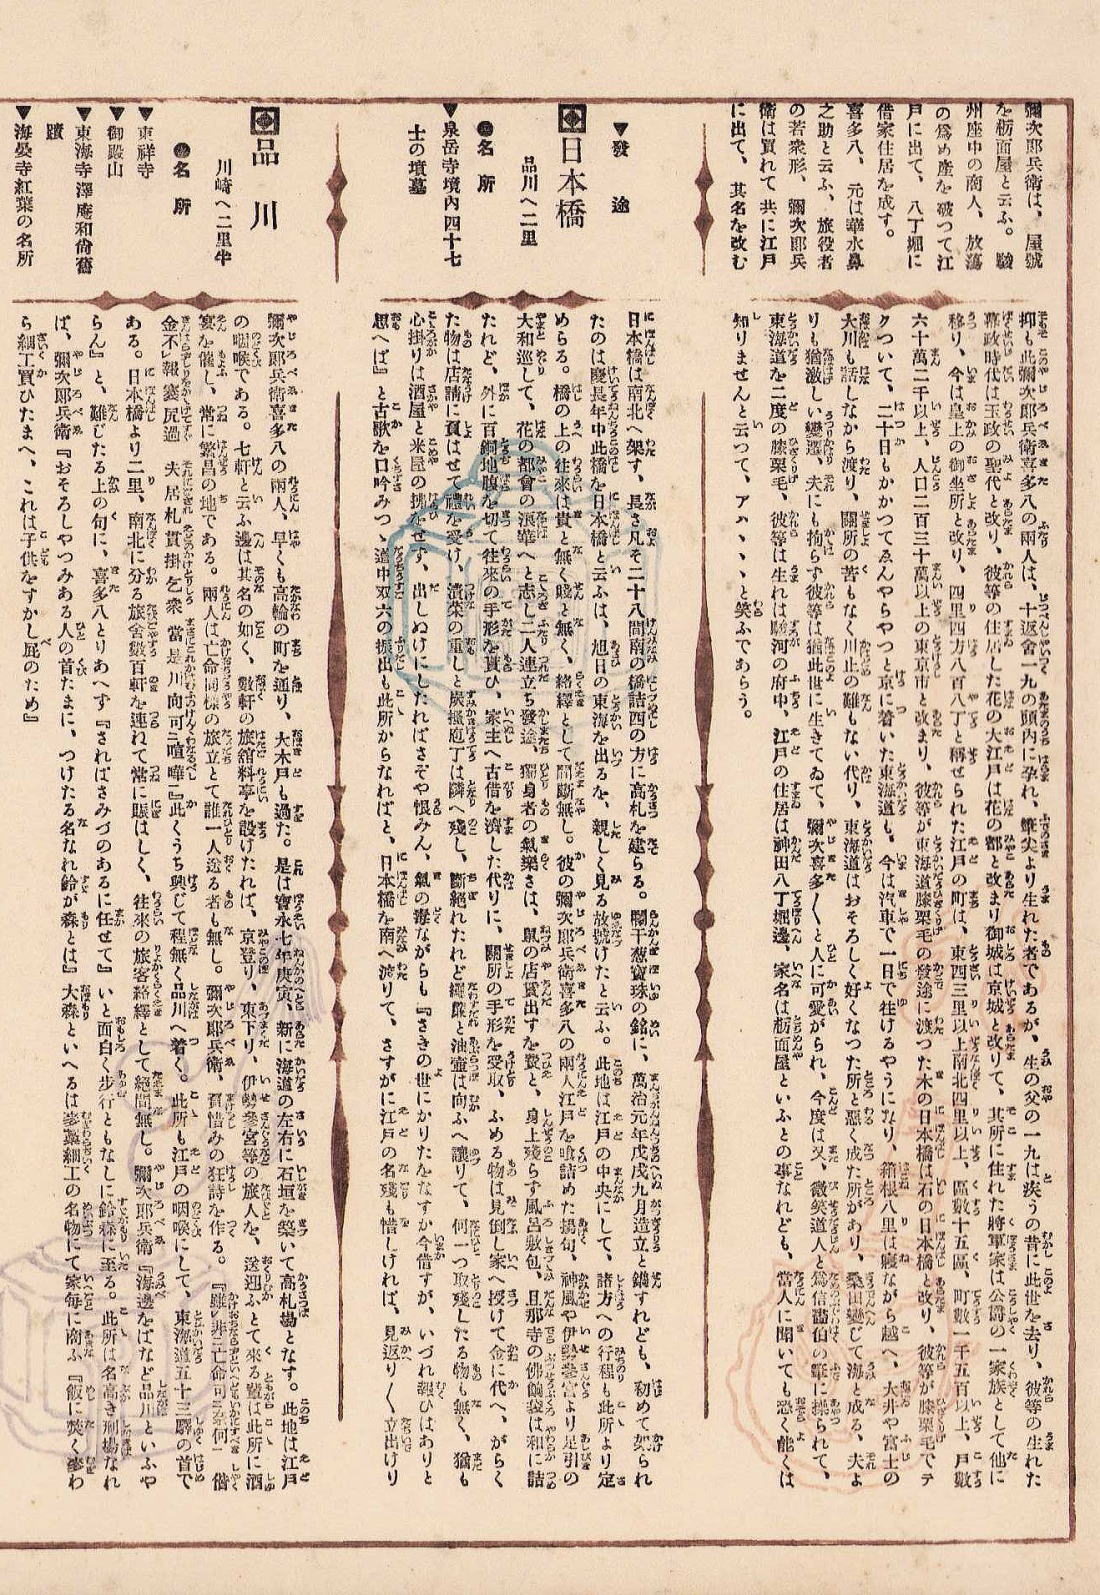 彌次郎兵衛は、屋號
を栃面屋と云ふ。駿
州座中の商人、放蕩
の爲め産を破つて江
戸に出て、八丁堀に
借家住居を成す。
喜多八、元は華水鼻
之助と云ふ、旅役者
の若衆形、彌次郎兵
衛は買れて共に江戸
に出て、其名を改む
抑も此彌次郎兵衛喜多八の兩人は、十返舍一九の頭内に孕れ、筆尖より生れた者であるが、生の父の一九は疾うの昔に此世を去り、彼等の生れた
幕政時代は王政の聖代と改り、彼等の住居した花の大江戸は花の都と改まり御城は京城と改りて、其所に住れた將軍家は公爵の一家族として他に
移り、今は皇上の御坐所と改り、四里四方八百八丁と稱せられた江戸の町は、東四三里以上南北四里以上、區數十五區、町數一千五百以上、戸數
六十萬二千以上、人口二百三十萬以上の東京市と改まり、彼等が東海道膝栗毛の發途に渡つた木の日本橋は石の日本橋と改り、彼等が膝栗毛でテ
クついて、二十日もかかつてゑんやらやつと京に着いた東海道も、今は汽車で一日で往けるやうになり、箱根八里は寢ながら越へ、大井や富士の
大川も話しながら渡り、關所の苦もなく川止の難もない代り、東海道はおそろしく好くなつた所と惡く成た所があり、桑田變じて海と成る、夫よ
りも猶激しい變遷、夫にも拘らす彼等は猶此世に生きてゐて、彌次喜多〳〵と人に可愛がられ、今度は又、微笑道人と爲信畵伯の筆に操られて、
東海道を二度の膝栗毛、彼等は生れは駿河の府中、江戸の住居は神田八丁堀邊、家名は栃面屋といふとの事なれども、當人に聞いても恐く能くは
知りませんと云つて、アハヽヽヽと笑ふであらう。
▼發途
日本橋
品川へ二里
●名所
▼泉岳寺境内四十七
士の墳墓
日本橋は南北へ架す、長さ凡そ二十八間南の橋詰四の方に高札を建らる。闌干葱寶珠の銘に、萬治元年戊戌九月造立と鐫すれども、初めて架られ
たのは慶長年中此橋を日本橋と云ふは、旭日の東海を出るを、親しく見る故號けたと云ふ。此地は江戸の中央にして、諸方への行程も此所より定
めらる。橋の上の往來は貴と無く賤と無く、絡繹として間斷無し。彼の彌次郎兵衛喜多八の兩人江戸を喰詰めた揚句、神風や伊勢參宮より足引の
大和巡して、花の都會の浪華へと志し二人連立ち發途、獨身者の氣樂さは、鼠の店賃出すを費と、身上殘らず風呂敷包、旦那寺の佛餉袋は和に詰
たれど、外に百銅地腹を切て往來の手形を貰ひ、家主へ古借を濟した代りに、關所の手形を受取、ふめる物は見倒し家へ授けて金に代へ、がらく
た物は店請に負はせて禮を受け、漬菜の重しと炭掻庖丁は隣へ殘し、斷絶れたれど繩簾と油壷は向ふへ讓りて、何一つ取殘したる物も無く、猶も
心掛りは酒屋と米屋の拂をせず、出しぬけにしたればさぞや恨みん、氣の毒ながらも『さきの世にかりたをなすか今借すが、いづれ報ひはありと
思へば』と古歌を口吟みつゝ道中双六の振出も此所からなればと、日本橋を南へ渡りて、さすがに江戸の名殘も惜しければ、見返り〳〵立出けり
品川
川崎へ二里半
●名所
▼東祥寺
▼御殿山
▼東海寺澤庵和尙舊
蹟
▼海晏寺紅葉の名所
彌次郎兵衛喜多八の兩人、早くも高輪の町を通り、大木戸も過た。是は寶永七年庚寅、新に海道の左右に石垣を築いて高札場となす。此地は江戸
の咽喉である。七軒と云ふ邊は其名の如く、數軒の旅舘料亭を設けたれば、京登り、東下り、伊勢參宮等の旅人を、送迎ふとて來る輩は此所に酒
宴を催し、常に繁昌の地である。兩人は亡命同樣の旅立とて誰一人送る者も無し。彌次郎兵衛、負惜みの狂詩を作る。『雖非亡命可奈何、借
金不報褰尻過、夫居札貫掛乞衆、當是川向可喧嘩』此くうち興じて程無く品川へ着く。此所も江戸の咽喉にして、東海道五十三驛の首で
ある。日本橋より二里、南北に分る旅舍數百軒を連ねて常に賑はしく、往來の旅客絡繹として絶間無し。彌次郎兵衛『海邊をばなど品川といふや
らん』と、難じたる上の句に、喜多八とりあへす『さればさみづのあるに任せて』いと面白く步行ともなしに鈴森に至る。此所は名高き刑場なれ
ば、彌次郎兵衛『おそろしやつみある人の首たまに、つけたる名なれ鈴が森とは』大森といへるは麥藁細工の名物にて家毎に商ふ『飯に焚く麥わ
ら細工買ひたまへ、これは子供をすかし屁のため』